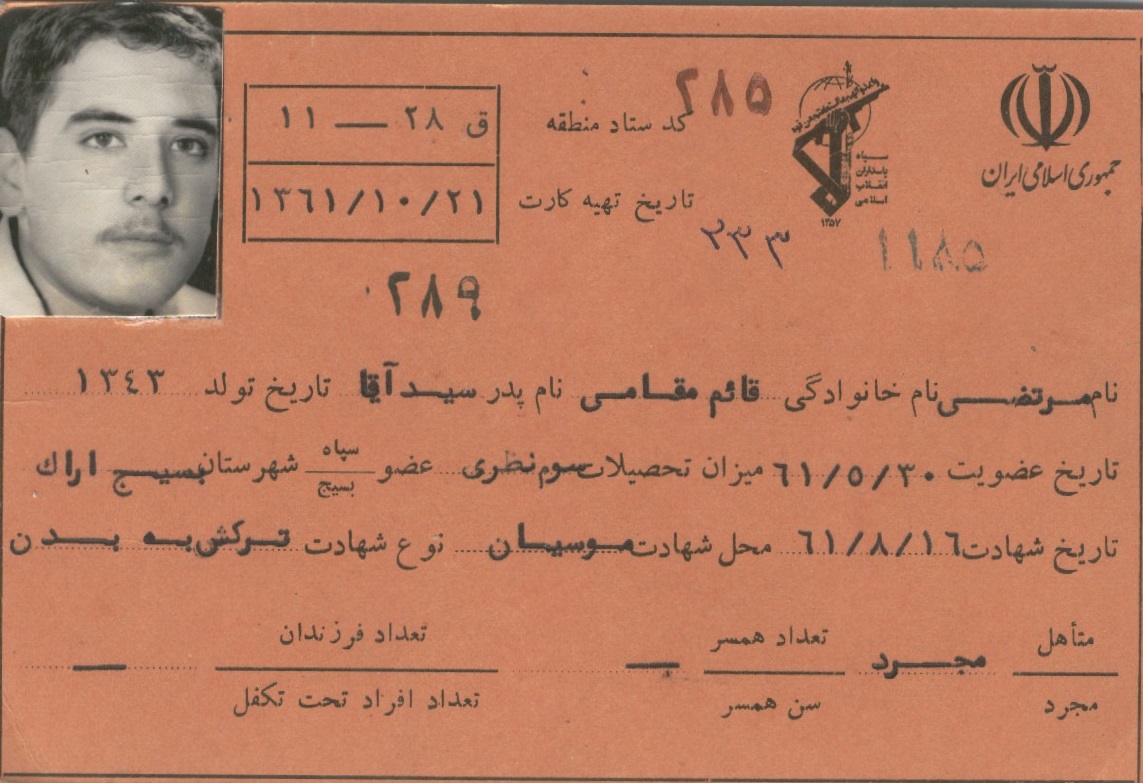 جمهوری اسلامی ایران
سپاه
پاسداران
انقلاب
اسلامی
۱۳۵۷
۲۸۵
کد ستاد منطقه ق ۲۸ — ۱۱
تاریخ تهیه کارت ۱۳۶۱/۱۰/۲۱
۱۱۸۵
۲۳۳
۲۸۹
نام مرتضی نام خانوادگی قائم مقامی نام پدر سید آقا تاریخ تولد ۱۳۴۳
تاریخ عضویت ۶۱/۵/۳۰ میزان تحصیلات سوم نظری عضو سپاه بسیج شهرستان بسیج اراك
تاریخ شهادت ۶۱/۸/۱۶ محل شهادت موسیان نوع شهادت ترکش به بدن
متأهل مجرد مجرد تعداد همسر سن همسر — تعداد فرزندان تعداد افراد تحت تکفل —